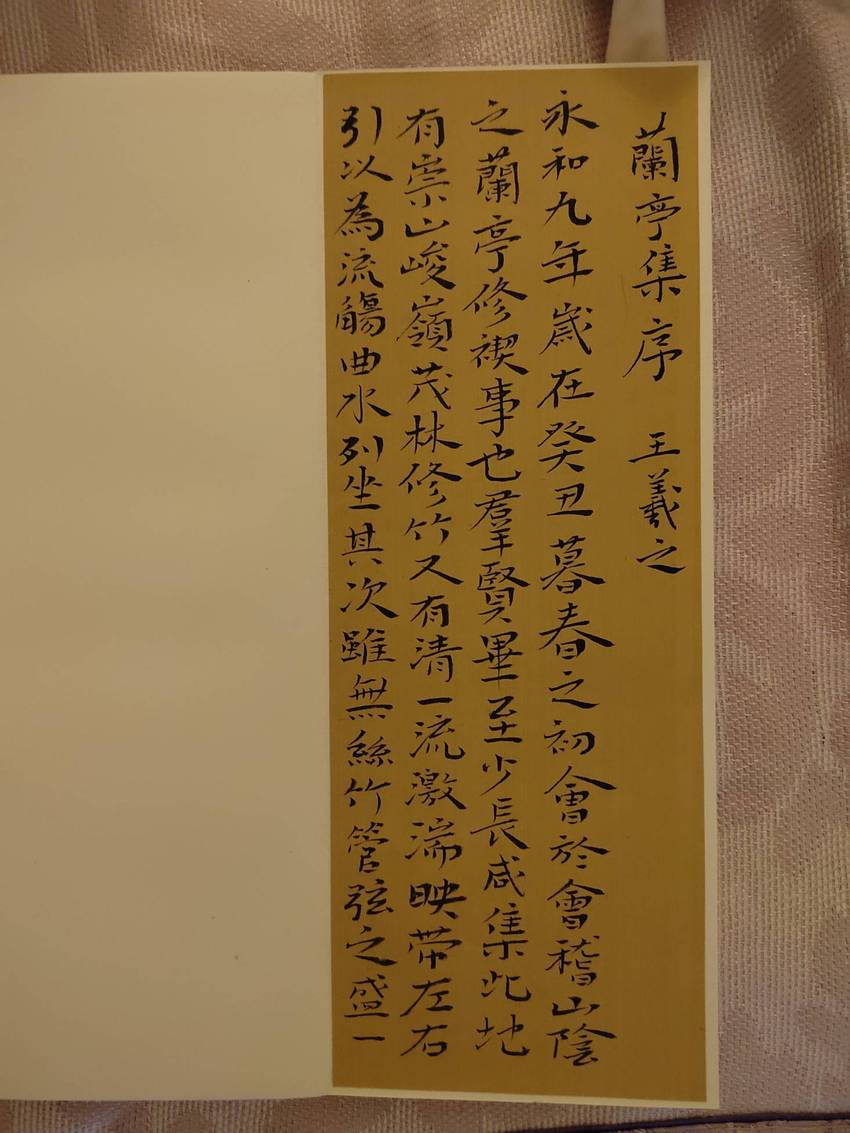 蘭亭集序 王羲之
永和九年歲在癸丑暮春之初會於會稽山陰
之蘭亭修禊事也羣賢畢至少長咸集此地
有崇山峻嶺茂林修竹又有清一流激湍映帶左右
引以為流觴曲水列坐其次雖無絲竹管弦之盛一